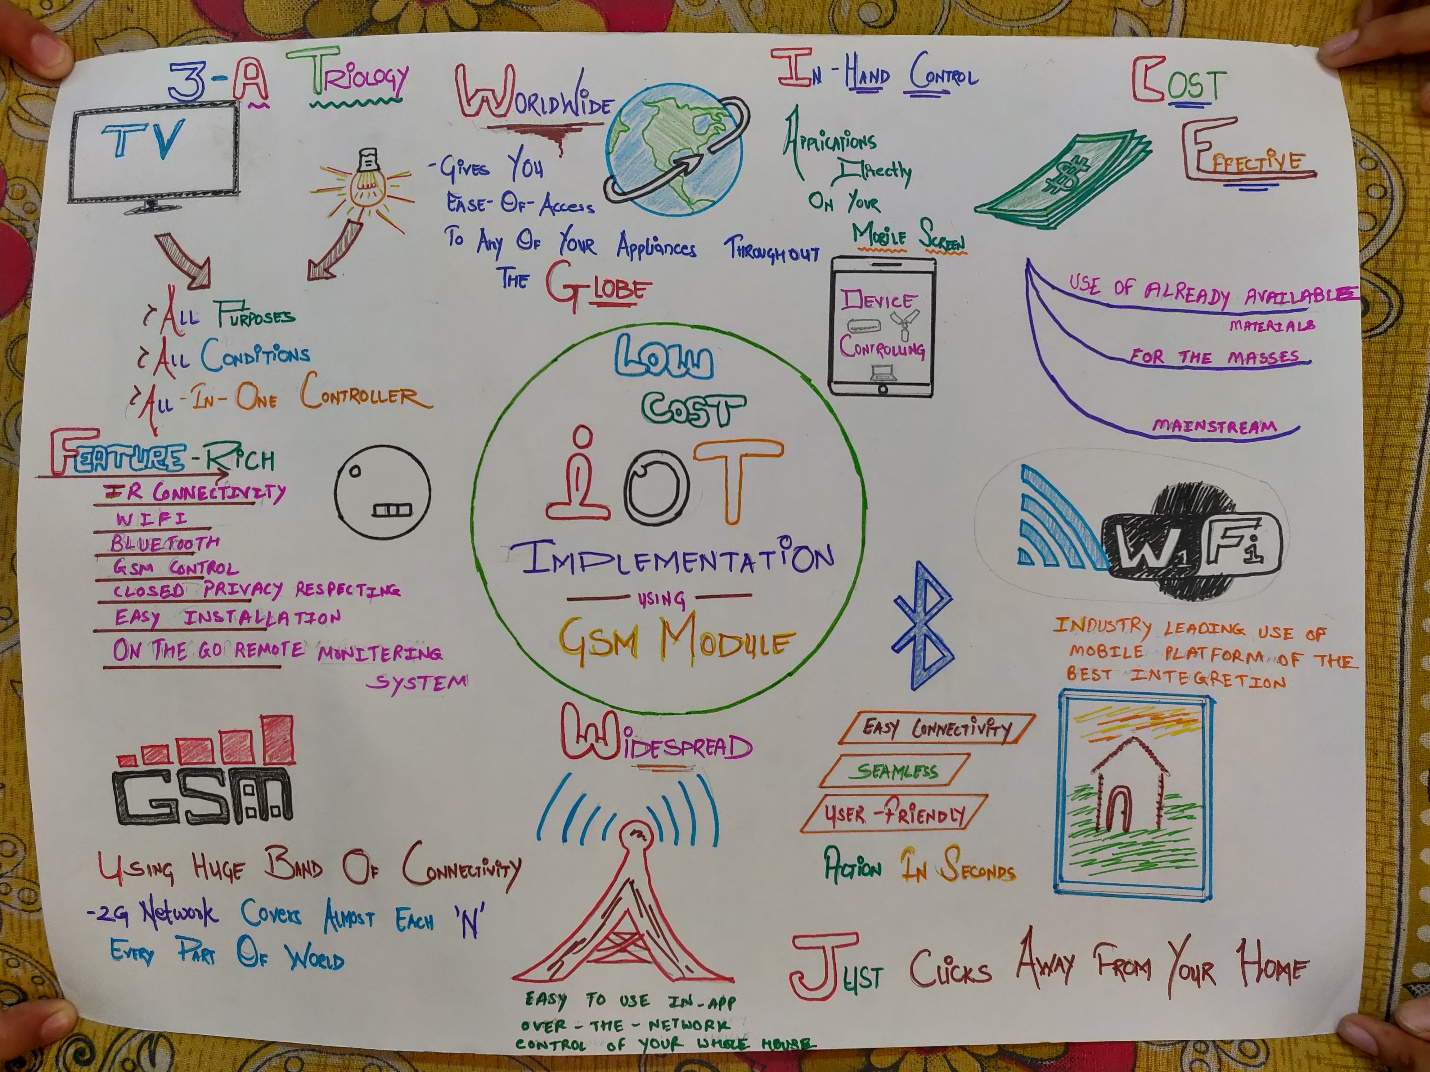 3-A TRIOLOGY
TV
? ALL PURPOSES
? ALL CONDITIONS
? ALL-IN-ONE CONTROLLER
WORLDWIDE
-GIVES YOU
EASE-OF-ACCESS
TO ANY OF YOUR APPLIANCES THROUGHOUT
THE GLOBE
IN-HAND CONTROL
APPLICATIONS
DIRECTLY
ON YOUR
MOBILE SCREEN
DEVICE
CONTROLLING
COST
EFFECTIVE
USE OF ALREADY AVAILABLE
MATERIALS
FOR THE MASSES
MAINSTREAM
FEATURE-RICH
IR CONNECTIVITY
WIFI
BLUETOOTH
GSM CONTROL
CLOSED PRIVACY RESPECTING
EASY INSTALLATION
ON THE GO REMOTE MONITERING
SYSTEM
LOW
COST
iOT
IMPLEMENTATION
USING
GSM MODULE
Wi Fi
INDUSTRY LEADING USE OF
MOBILE PLATFORM OF THE
BEST INTEGRETION
GSM
USING HUGE BAND OF CONNECTIVITY
-2G NETWORK COVERS ALMOST EACH 'N'
EVERY PART OF WORLD
WIDESPREAD
EASY TO USE IN-APP
OVER-THE-NETWORK
CONTROL OF YOUR WHOLE HOUSE
EASY CONNECTIVITY
SEAMLESS
USER-FRIENDLY
ACTION IN SECONDS
JUST CLICKS AWAY FROM YOUR HOME